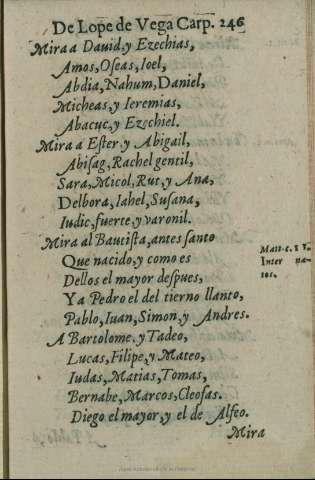 De Lope de Vega Carp. 246
Mira a Dauid, y Ezechias,
Amos, Oseas, Ioel,
Abdia, Nahum, Daniel,
Micheas, y Ieremias,
Abacuc, y Ezechiel.
Mira a Ester, y Abigail,
Abisag, Rachel gentil,
Sara, Micol, Rut, y Ana,
Delbora, Iahel, Susana,
Iudic, fuerte, y varonil.
Mira al Bautista, antes santo
Que nacido, y como es
Dellos el mayor despues,
Ya Pedro el del tierno llanto,
Pablo, Iuan, Simon, y Andres.
A Bartolome, y Tadeo,
Lucas, Filipe, y Mateo,
Iudas, Matias, Tomas,
Bernabe, Marcos, Cleofas.
Diego el mayor, y el de Alfeo.
Mira
Matt. c. 11.
Inter na-
tos.